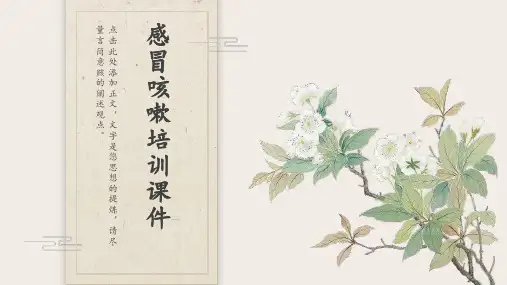 感冒咳嗽培训课件
点击此处添加正文，文字是您思想的提炼，请尽
量言简意赅的阐述观点。